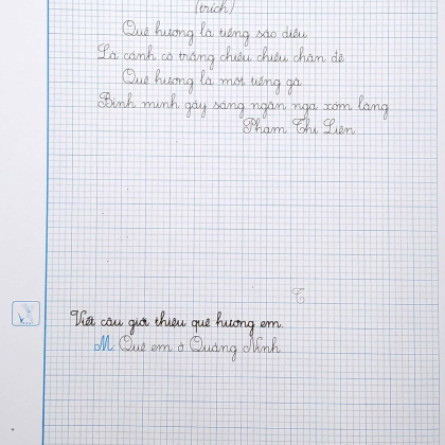 (trích)
Quê hương là tiếng sáo diều
Là cánh cò trắng chiều chiều chân đê
Quê hương là một tiếng gà
Bình minh gáy sáng ngân nga xóm làng
Phạm Thị Liên
Viết câu giới thiệu quê hương em.
M: Quê em ở Quảng Ninh